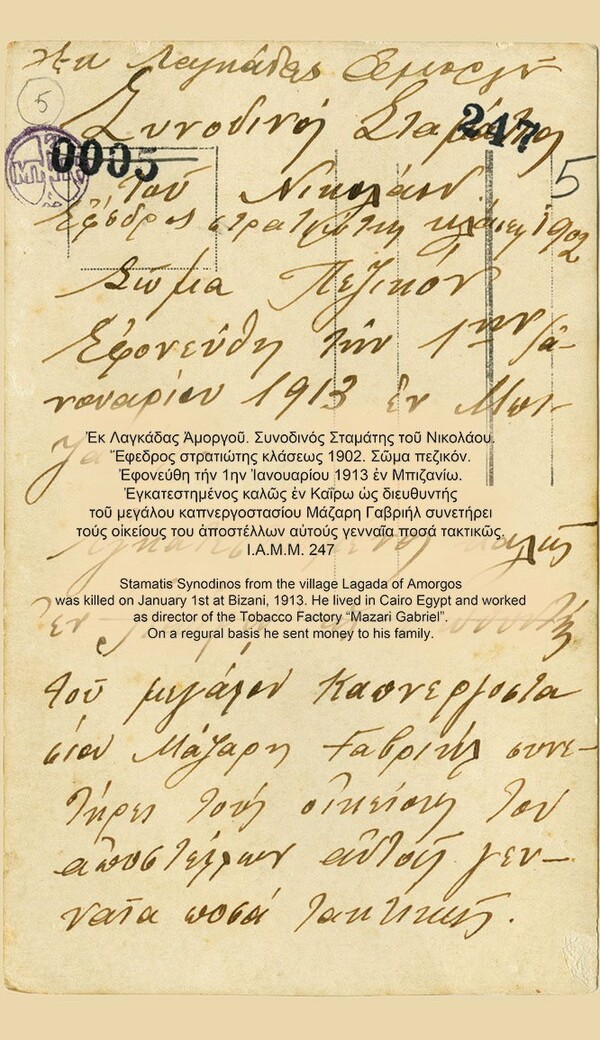 Ἐκ Λαγκάδας Ἀμοργοῦ
5
Συνοδινός Σταμάτης
247
0005
τοῦ Νικολάου
5
Ἔφεδρος στρατιώτης κλάσεως 1902
Σῶμα Πεζικόν
Ἐφονεύθη τὴν 1ην Ἰα-
νουαρίου 1913 ἐν Μπι-
Ἐκ Λαγκάδας Ἀμοργοῦ. Συνοδινός Σταμάτης τοῦ Νικολάου.
Ἔφεδρος στρατιώτης κλάσεως 1902. Σῶμα πεζικόν.
Ἐφονεύθη τήν 1ην Ἰανουαρίου 1913 ἐν Μπιζανίω.
Ἐγκατεστημένος καλῶς ἐν Καΐρω ὡς διευθυντής
τοῦ μεγάλου καπνεργοστασίου Μάζαρη Γαβριήλ συνετήρει
τούς οἰκείους του ἀποστέλλων αὐτούς γενναῖα ποσά τακτικῶς.
Ι.Α.Μ.Μ. 247
καλῶς
Stamatis Synodinos from the village Lagada of Amorgos
was killed on January 1st at Bizani, 1913. He lived in Cairo Egypt and worked
as director of the Tobacco Factory “Mazari Gabriel”.
On a regural basis he sent money to his family.
ἐν
τοῦ μεγάλου Καπνεργοστα
σίου Μάζαρη Γαβριήλ συνε-
τήρει τούς οἰκείους του
ἀποστέλλων αὐτούς γεν-
ναῖα ποσά τακτικῶς.